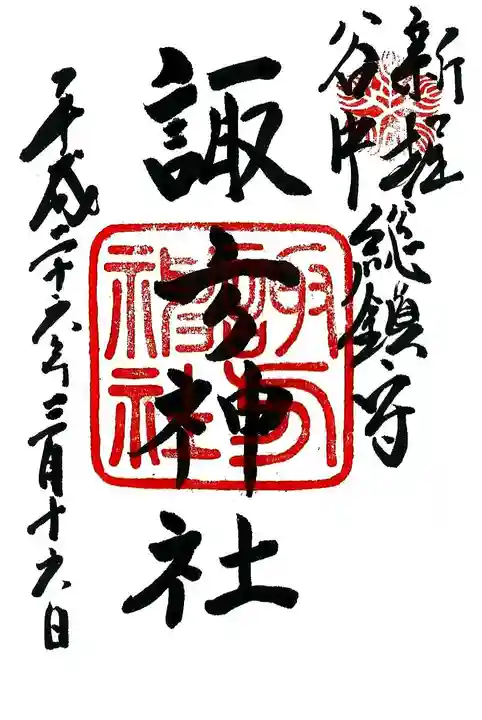 新堀
谷中
総鎮守
諏方神社
平成二十六年三月十六日
諏方
神社